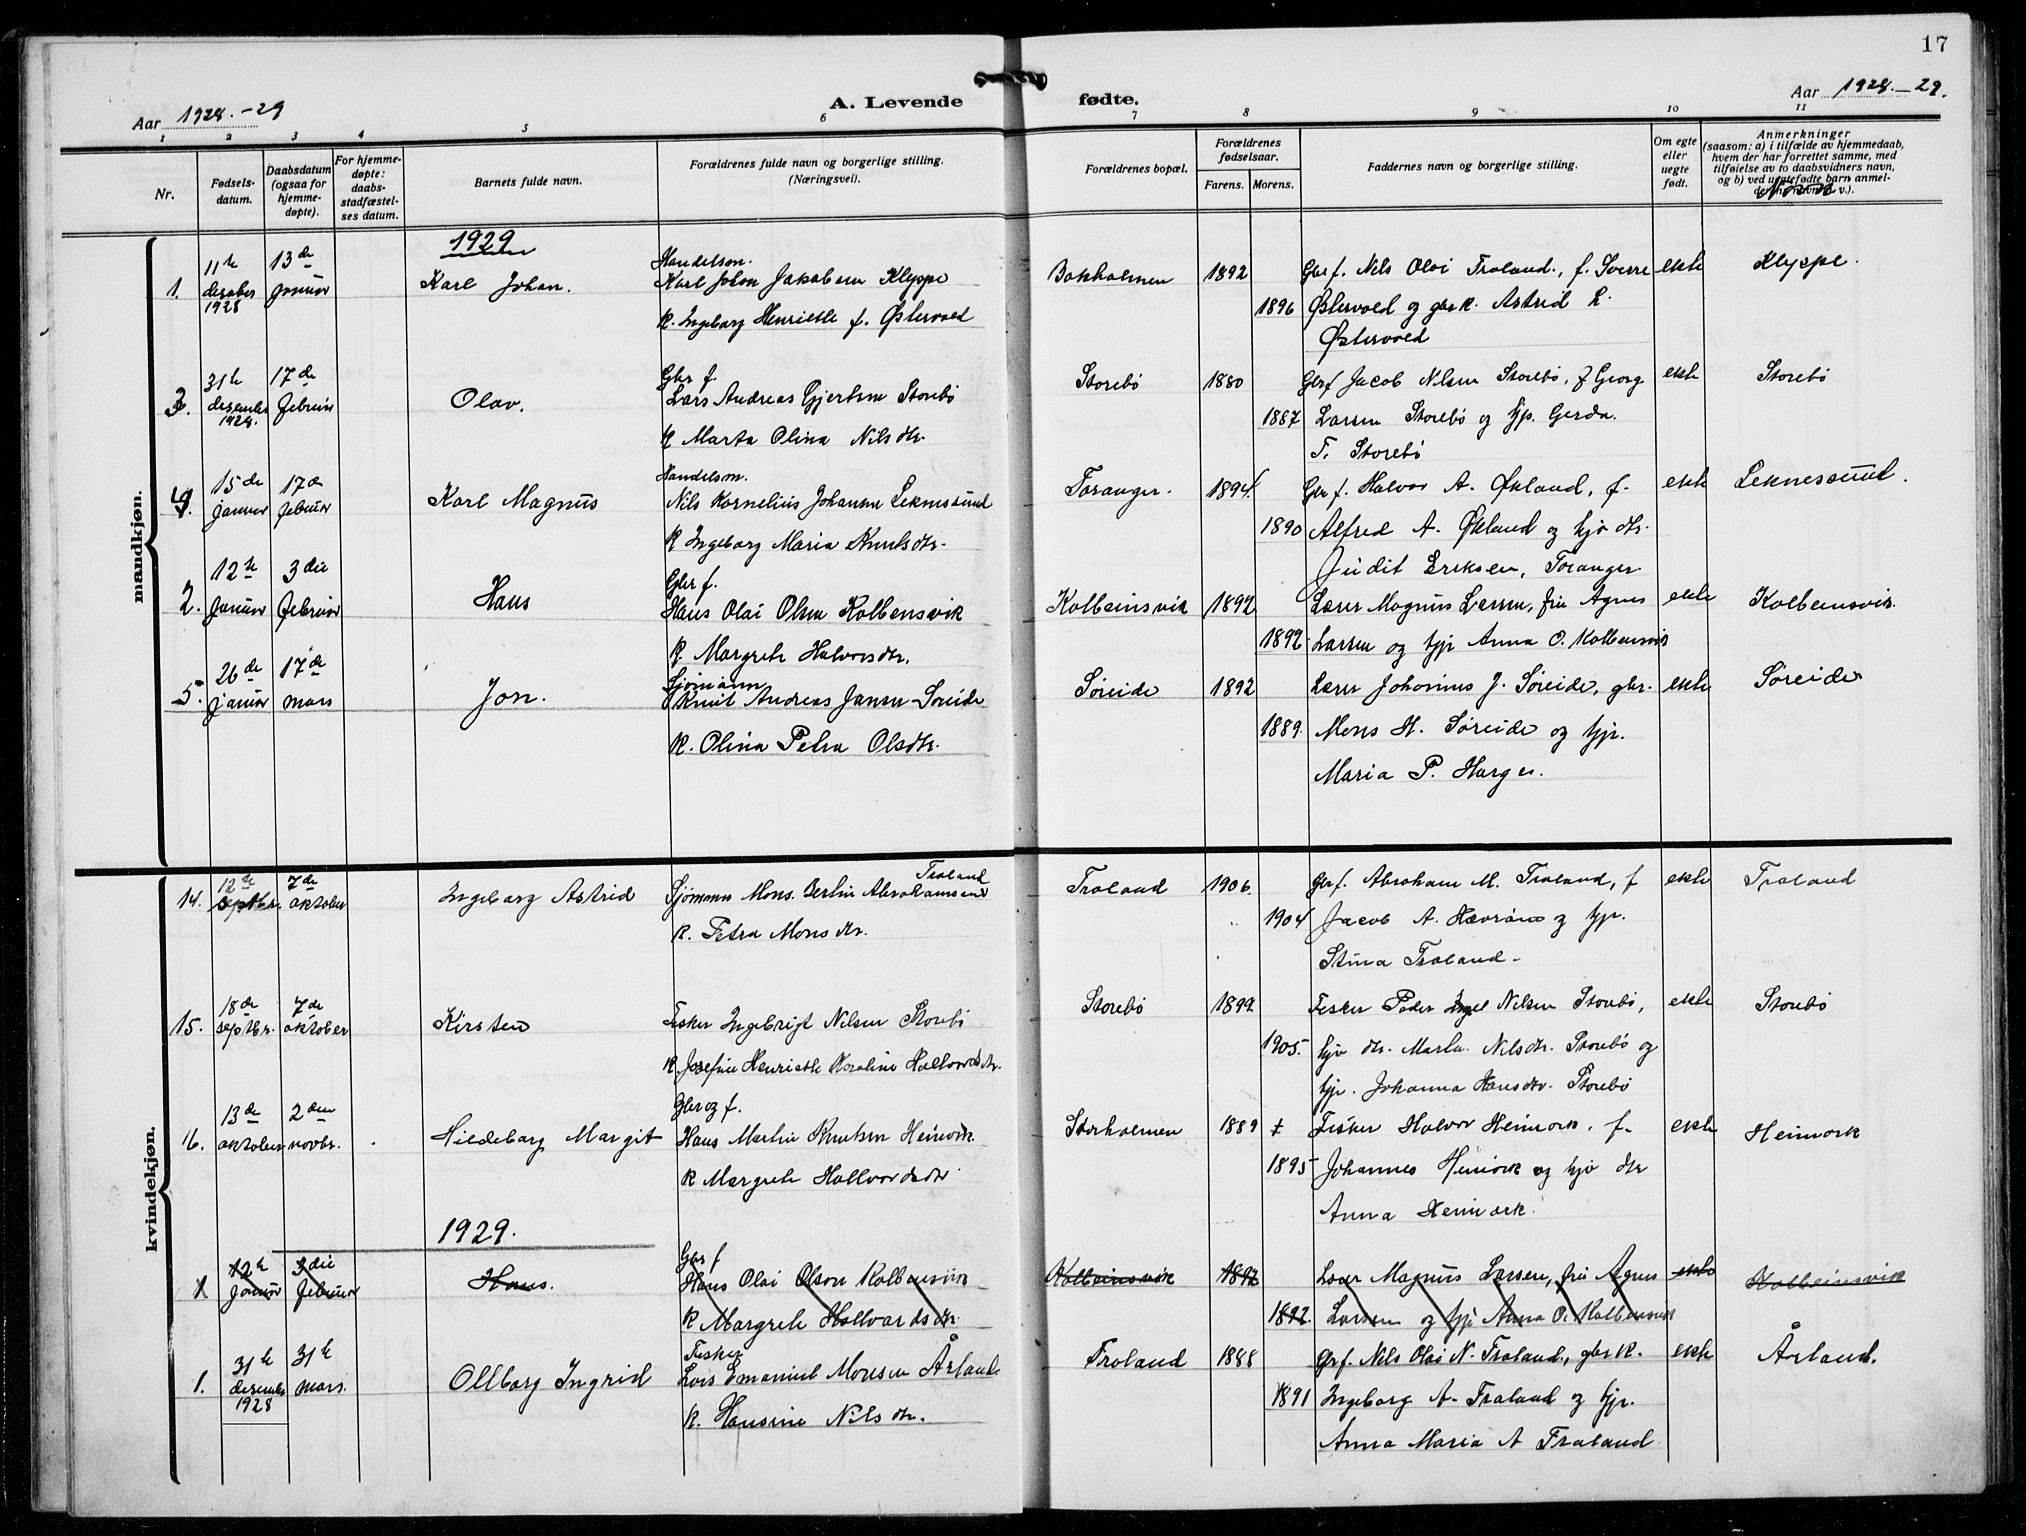 17
Aar 1928.-29
A. Levende fødte.
Aar 1928.-29.
1 2 3 4 5 6 7 8 9 10 11
Nr.
Fødsels-
datum.
Daabsdatum
(ogsaa for
hjemme-
døpte).
For hjemme-
døpte:
daabs-
stadfæstel-
ses datum.
Barnets fulde navn.
Forældrenes fulde navn og borgerlige stilling.
(Næringsvei).
Forældrenes bopæl.
Forældrenes
fødselsaar.
Farens. Morens.
Faddernes navn og borgerlige stilling.
Om egte
eller
uegte
født.
Anmerkninger
(saasom: a) i tilfælde av hjemmedaab,
hvem der har forrettet samme, med
tilføielse av to daabsvidners navn,
og b) ved uegtefødte barn anmel-
mandkjøn.
1929
1. 11te desember 1928 13de januar Karl Johan.
Handelsm.
Karl Johan Jakobsen Kleppe
K. Ingeborg Henriette f. Østervold
Bakholmen 1892 1896
Gbr f. Nils Olai Troland., f. Sverre
Østervold og gbr k. Astrid L.
Østervold
ekte Kleppe.
3. 31te desember 1928. 17de februar Olav.
Gbr f.
Lars Andreas Gjertsen Storebø
K Marta Olina Nilsdtr.
Storebø 1880 1887
Gbrf Jacob Nilsen Storebø, f Georg
Larsen Storebø og pp. Gerda
T. Storebø
ekte Storebø
4. 15de januar 17de februar Karl Magnus
Handelsm.
Nils Kornelius Johansen Leknessund
K Ingeborg Maria Knutsdtr.
Toranger. 1894. 1890
Gbr f. Halvor A. Økland, f.
Alfred A. Økland og hjv dtr.
Judit Eriksen, Toranger
ekte Leknessund.
2. 12te januar 3die februar Hans
Gbr f.
Hans Olai Olsen Kolbensvik
K. Margrete Halvorsdtr.
Kolbeinsvik 1892 1892.
Lærer Magnus Larsen, fru Agnes
Larsen og pp. Anna O. Kolbensvik
ekte Kolbeinsvik.
5. 26de januar 17de mars Jon.
Sjømann
Knut Andreas Jansen Søreide
K. Olina Petra Olsdtr.
Søreide 1892 1889.
Lærer Johannes J. Søreide, gbr.
Mons H. Søreide og pp.
Maria P. Hauge.
ekte Søreide
kvindekjøn.
14. 12te septbr. 7de oktober Ingeborg Astrid
Troland
Sjømann Mons Bertin Abrahamsen
K. Petra Monsdtr.
Troland 1906. 1904
Gbr f. Abraham M. Troland, f
Jacob A. Hevrøen og pp.
Stina Troland-
ekte Troland
15. 18de septbr. 7de oktober Kirsten
Fisker Ingebrigt Nilsen Storebø
K. Josefine Henriette Karoline Hallvardsdtr.
Storebø 1899 1905.
Fisker Peder Nilsen Storebø,
hjv dtr. Marta Nilsdtr. Storebø og
pp. Johanna Hansdtr. Storebø
ekte Storebø
16. 13de oktober 2den novbr. Hildeborg Margit
Gbr og f.
Hans Martin Knutsen Heimark
K Margrete Hallvardsdtr
Storholmen 1889 1895
Fisker Halvor Heimark, f.
Johannes Heimark og hjv dtr
Anna Heimark.
ekte Heimark
1929.
1 12te januar 3die februar Hans.
Gbr f
Hans Olai Olson Kolbensvik
K Margrete Hallvardsdtr.
Kolbeinsvik 1892 1892.
Lærer Magnus Larsen, fru Agnes
Larsen og pp. Anna O. Kolbensvik
ekte Kolbeinsvik
1. 31te desember 1928 31te mars. Ollborg Ingrid
Fisker
Lars Emanuel Monsen Årland.
K. Hansine Nilsdtr.
Troland 1888 1891
Gbrf. Nils Olai N. Troland., gbr k.
Ingeborg A. Troland og pp.
Anna Maria A Troland
ekte Årland.